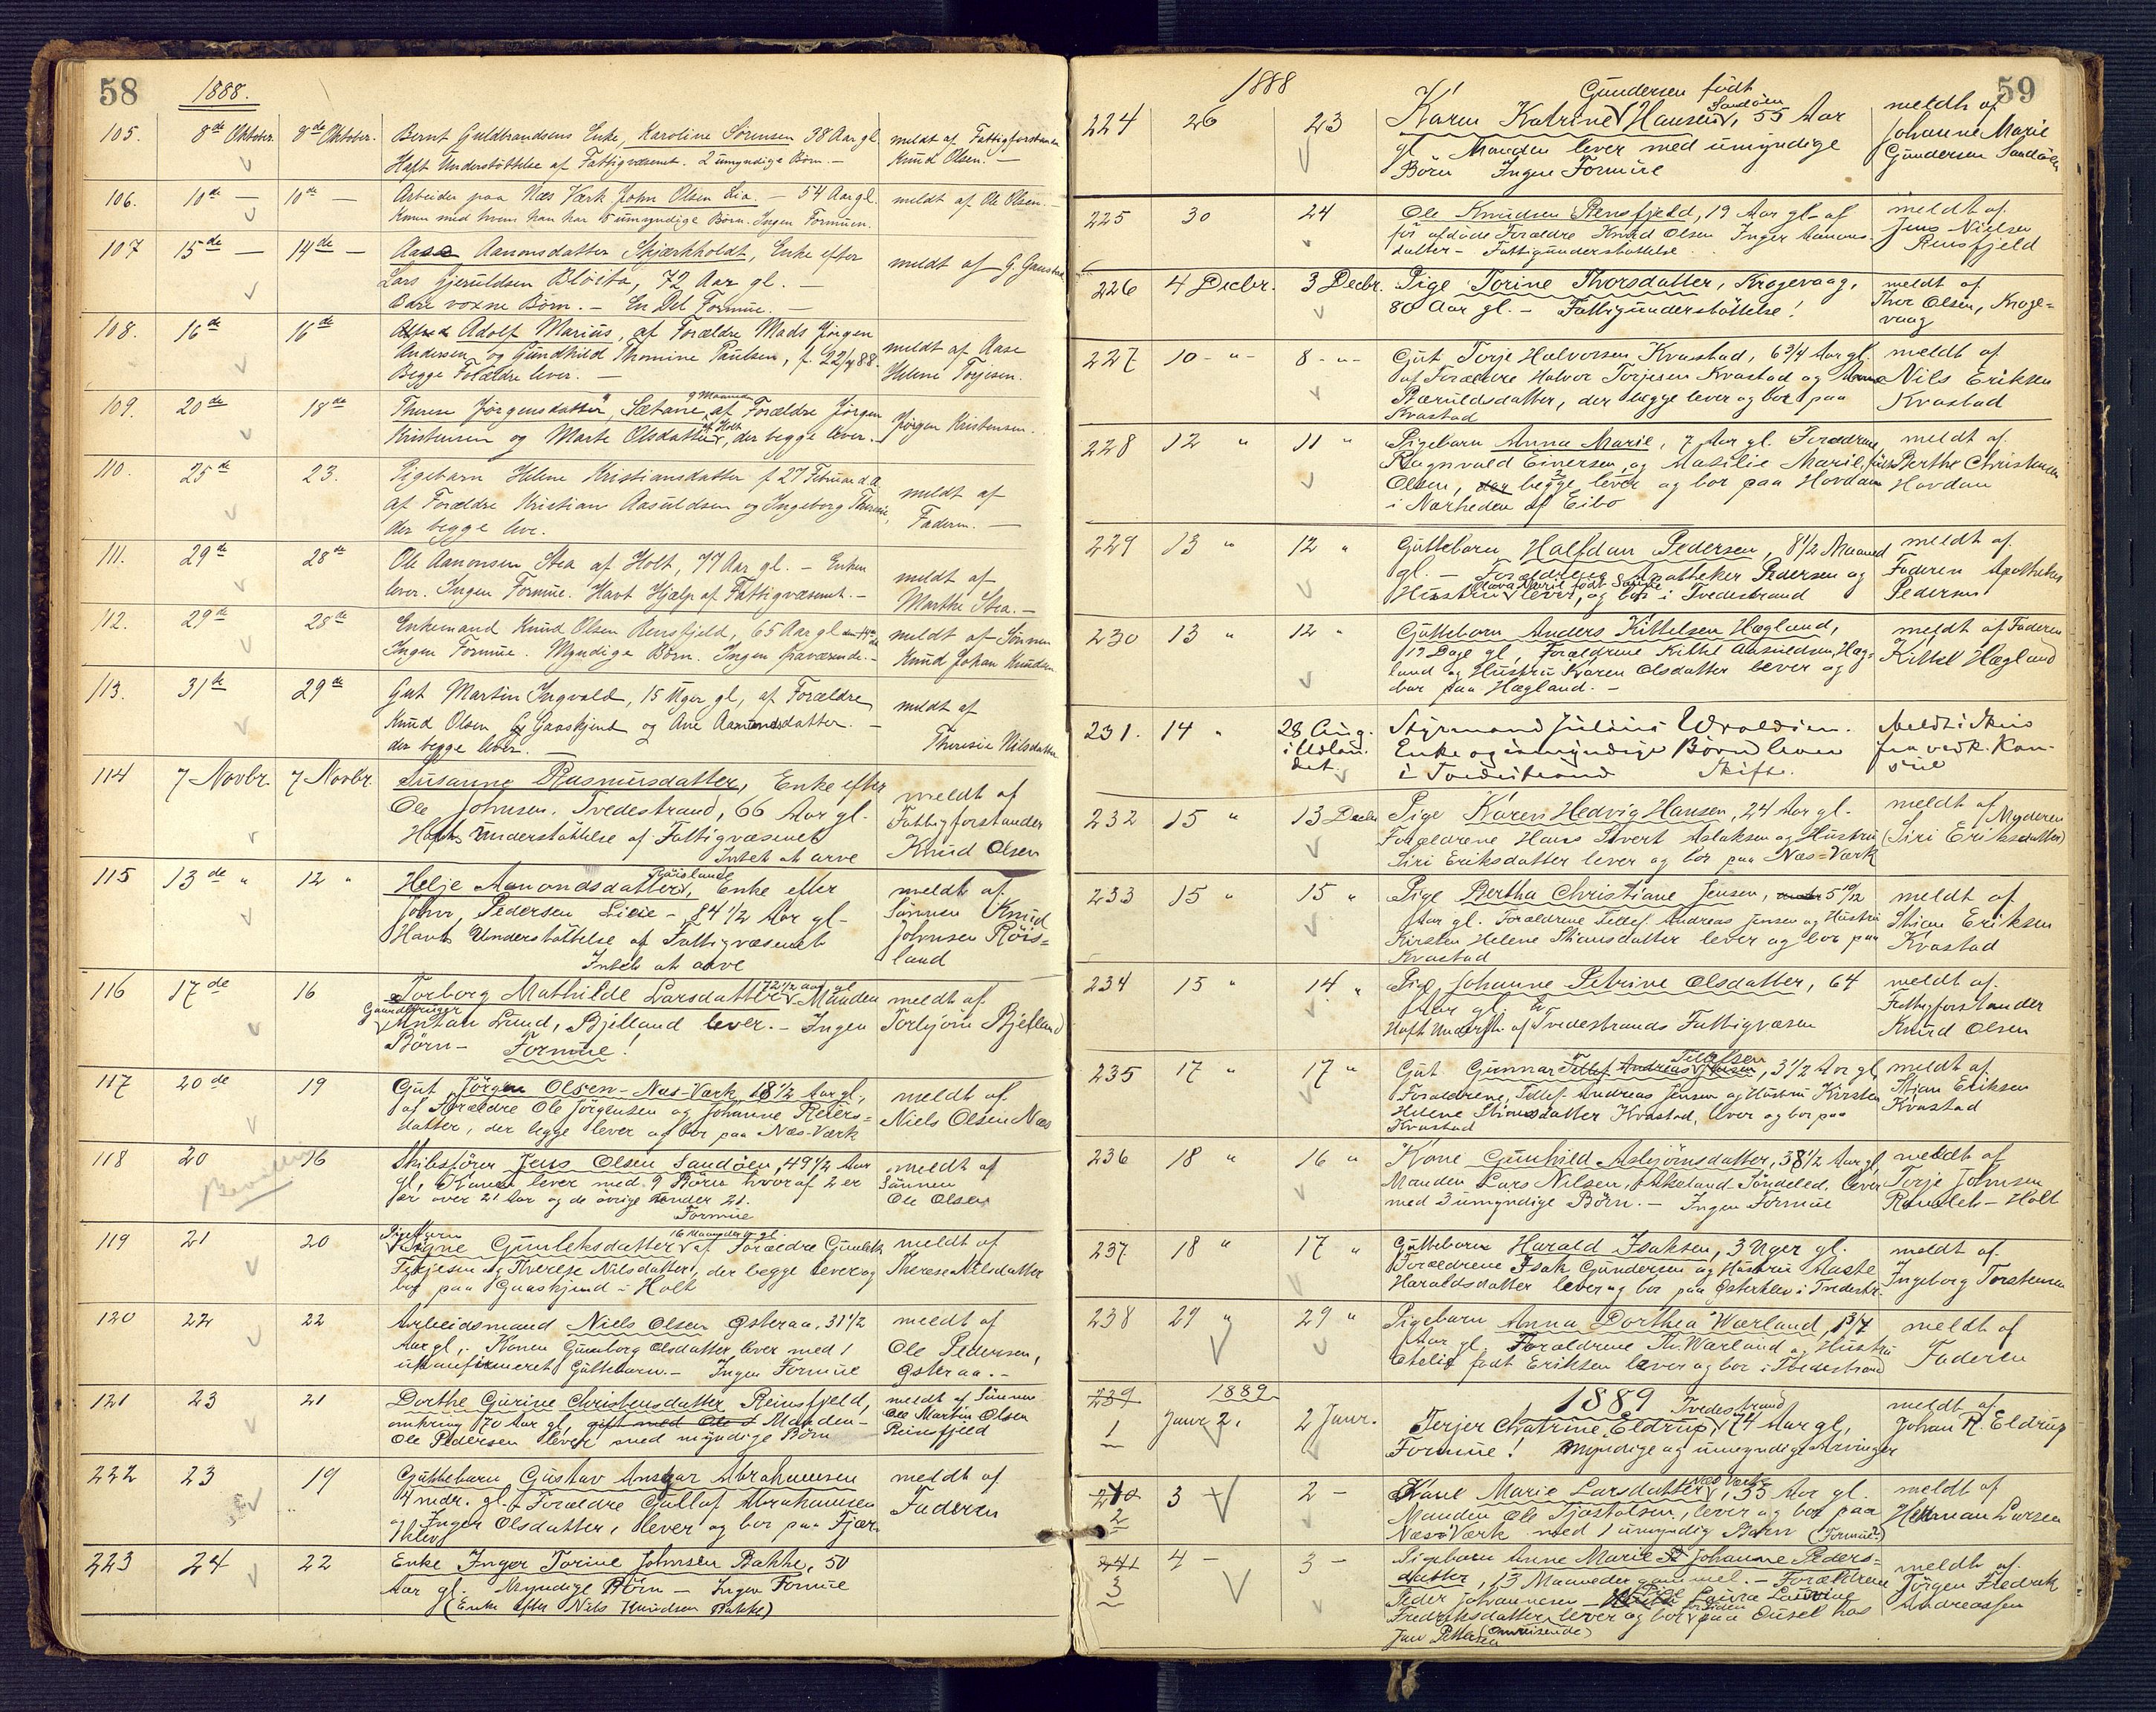 58 1888.
105. 8de Oktober. 8de Oktober. Bernt Guldbrandsens Enke, Karoline Sörensen 38 Aar gl. meldt af Fattigforstander
Haft Understöttelse af Fattigvæsenet. 2 umyndige Börn. — Knud Olsen. —
106. 10de — 10de — Arbeider paa Næs Værk John Olsen Lia — 54 Aar gl. meldt af Ole Olsen. —
Konen med hvem han har 5 umyndige Börn. Ingen Formuen.
107 15de — 14de — Aase Aanonsdatter Skjærkholdt, Enke efter meldt af G.
Lars Gjeruldsen 72 Aar gl. —
Bare voxne Börn. — En Del Formue. —
108. 16de 16de Adolf Marius, af Forældre Mads Jörgen meldt af Aase
Andersen og Gundhild Thomine Paulsen, f. 22/4 88. Helene Torjesen.
Begge Forældre lever. —
109. 20de 18de Therese Jörgensdatter, Sætane, 9 Maaneder af Forældre Jörgen Jörgen Kristensen.
Kristensen og Marte Olsdatter af Holt, der begge lever. —
110. 25de 23. Pigebarn Helene Kristiansdatter f 27 Februar d.A. meldt af
af Forældre Kristian Aasuldsen og Ingeborg Therese, Faderen. —
der begge leve.
111. 29de 28de Ole Aanonsen Stea af Holt, 77 Aar gl. — Enken meldt af
lever. Ingen Formue. Havt Hjælp af Fattigvæsenet. — Marthe Stea. —
112. 29de 28de Enkemand Knud Olsen Rensfjeld, 65 Aar gl meldt af Sönnen
Ingen Formue. Myndige Börn. Ingen fraværende. — Knud Johan Knudsen
113. 31te 29de Gut Martin Ingvald, 15 Uger gl, af Forældre meldt af
Knud Olsen Gaaskjend og Ane Aamundsdatter. — Theresie Nilsdatter
der begge lever. —
114 7 Novbr. 7 Novbr. Susanne Rasmusdatter, Enke efter meldt af
Ole Johnsen, Tvedestrand, 66 Aar gl. Fattigforstander
Haft Understöttelse af Fattigvæsenet Knud Olsen
Intet at arve
115 13de " 12 " Helje Aamondsdatter Röisland, Enke efter meldt af
John Pedersen Lieie — 84 1/2 Aar gl — Sönnen Knud
Havt Understöttelse af Fattigvæsenet Johnsen Röis-
Intet at arve land
116 17de 16 Torborg Mathilde Larsdatter 72 1/2 Aar gl. Manden meldt af
Gaardbruger Antan Lund, Bjelland lever. — Ingen Torbjörn Bjelland
Börn — Formue!
117 20de 19 Gut Jörgen Olsen — Næs-Værk 18 1/2 Aar gl, meldt af
af Forældre Ole Jörgensen og Johanne Reiers- Niels Olsen Næs
datter, der begge lever og bor paa Næs-Værk
118 20 16 Skibsförer Jens Olsen Sandöen, 49 1/2 Aar meldt af
gl, Konen lever med 9 Börn hvoraf 2 er Sönnen
er over 21 Aar og de övrige under 21. Ole Olsen
Formue
119 21 20 Pigebarn Signe Gunleksdatter 16 Maaneder gl. af Forældre Gunlek meldt af
Terjesen og Therese Nilsdatter, der begge lever og Therese Nilsdatter
bor paa Gaaskjend i Holt
120 22 22 Arbeidsmand Niels Olsen Østeraa, 31 1/2 meldt af
Aar gl,. Konen Gunborg Olsdatter lever med 1 Ole Pedersen,
ukonfirmeret Guttebarn. — Ingen Formue Østeraa. —
121 23 21 Dorthe Gurine Christensdatter Reinsfjeld, meldt af Sönnen
omkring 70 Aar gl, gift med Ole Manden — Ole Martin Olsen
Ole Pedersen lever med myndige Börn Reinsfjeld
222 23 19 Guttebarn Gustav Ansgar Abrahamsen meldt af
4 mdr. gl. Forældre Gullaf Abrahamsen Faderen
og Inger Olsdatter, lever og bor paa Fjær-
kleiv
223 24 22 Enke Inger Torine Johnsen Bakke, 50
Aar gl. Myndige Börn — Ingen Formue
(Enke efter Nils Knudsen Bakke)
59 1888
224 26 23 Karen Katrine Gundersen födt Hansen Sandöen, 55 Aar meldt af
gl. Manden lever med umyndige Johanne Marie
Börn Ingen Formue Gundersen Sandöen
225 30 24 Ole Knudsen Rensfjeld, 19 Aar gl — af meldt af
för afdöde Forældre Knud Olsen Inger Aanons- Jens Nielsen
datter — Fattigunderstöttelse Rensfjeld
226 4 Decbr. 3 Decbr. Pige Torine Thorsdatter, Krogevaag, meldt af
80 Aar gl. — Fattigunderstöttelse! Thor Olsen, Kroge-
vaag
227 10 - " - 8 - " - Gut Torje Halvorsen Kvastad, 6 3/4 Aar gl. meldt af
af Forældre Halvor Torjesen Kvastad og Anne Nils Eriksen
der begge lever og bor paa Kvastad
Kvastad
228 12 " 11 " Pigebarn Anna Marie, 7 Aar gl. Forældrene meldt af
Ragnvald Einersen, og Masilie Marie, födt Berthe Christensen
Olsen, der begge lever og bor paa Hovdan Hovdan
i Nærheden af Eibo
229 13 " 12 " Guttebarn Halfdan Pedersen, 8 1/2 Maaned meldt af
gl. — Forældrene Apotheker Pedersen og Faderen Apotheker
Hustru lever, og bor i Tvedestrand Pedersen
230 13 " 12 " Guttebarn Anders Kittelsen Hægland, meldt af Faderen
12 Dage gl, Forældrene Kittel Aasuldsen, Hæg- Kittel Hægland
land og Hustru Karen Olsdatter lever og
bor paa Hægland. —
231. 14 " 28 Aug. Styrmand Julius Wroldsen. Meldt i Skriv
i Udlan- Enke og umyndige Börn lever fra vedk. Kon-
det. i Tvedestrand Skifte. sul
232 15 " 13 Decbr Pige Karen Hedvig Hansen, 24 Aar gl. meldt af Moderen
Forældrene Hans Sivert Aslaksen og Hustru (Siri Eriksdatter)
Siri Eriksdatter lever og bor paa Næs-Værk
233 15 " 15 " Pige Bertha Christiane Jensen, 5 10/12 meldt af
Aar gl. Forældrene Tellef Andreas Jensen og Hustru Stian Eriksen
Kirsten Helene Stiansdatter lever og bor paa Kvastad
Kvastad
234 15 " 14 " Pige Johanne Petrine Olsdatter, 64 meldt af
Aar gl. Fattigforstander
Haft Underst. af Tvedestrands Fattigvæsen Knud Olsen
235 17 " 17 " Gut Gunnar Tellef Andreas Jensen Tellefsen, 3 1/2 Aar gl meldt af
Forældrene, Tellef Andreas Jensen og Hustru Kirsten Stian Eriksen
Helene Stiansdatter Kvastad, lever og bor paa Kvastad
Kvastad
236 18 " 16 " Kone Gunhild Asbjörnsdatter, 38 1/2 Aar gl, meldt af
Manden Lars Nilsen, Akeland — Söndeled, lever Torje Johnsen
med 3 umyndige Börn. — Ingen Formue Holt
237 18 " 17 " Guttebarn Harald Isaksen, 3 Uger gl. meldt af
Forældrene Isak Gundersen og Hustru Aaste Ingeborg Torstensen
Haraldsdatter lever og bor paa Østerklev i Tvedestr.
238 29 " 29 " Pigebarn Anna Dorthea Wærland, meldt af
Aar gl. Forældrene Th. Wærland og Hustru Faderen
födt Eriksen lever og bor i Tvedestrand
239 1889 1889
1 Janr 2. 2 Janr. Terjer Chatrine Eldrup, Tvedestrand 74 Aar gl, meldt af
Formue! Myndige og umyndige Arvinger Johan R. Eldrup
240 3 2 — Kone Marie Larsdatter Næs Værk, 35 Aar gl. meldt af
2 Manden Ole Tjöstolsen, lever og bor paa Herman Larsen
Næs Værk med 1 umyndig Barn (Formue)
241 4 — 3 — Pigebarn Anne Marie Johanne Peders- meldt af
3 datter, 13 Maaneder gammel. — Forældrene Jörgen Fredrik
Peder Johannesen — Pige Laura Lovise Andreassen
Fredriksdatter lever og bor paa Ousel hos
Jan Pettersen (Omreisende)